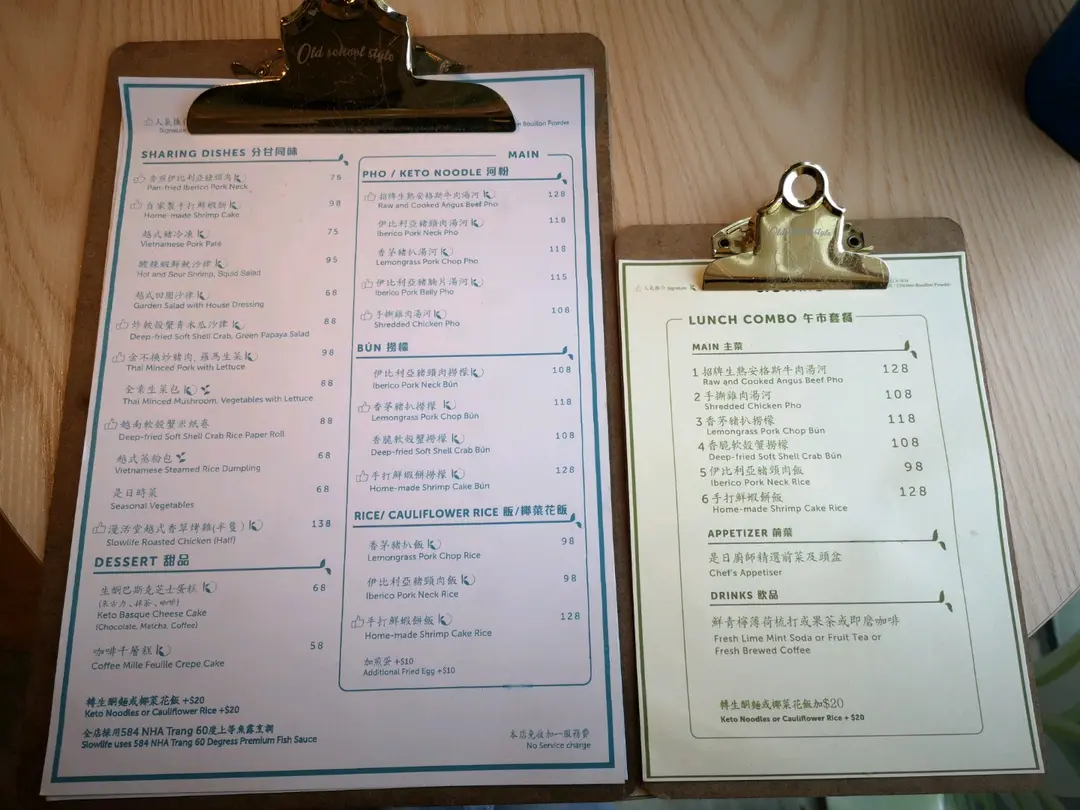 Old school style
人氣推
Signature
Bouillon Powder
SHARING DISHES 分甘同味
香煎伊比利亞豬頸肉 76
Pan-fried Iberico Pork Neck
自家製手打鮮蝦餅 98
Home-made Shrimp Cake
越式豬冷凍 75
Vietnamese Pork Paté
酸辣蝦鮮魷沙律 95
Hot and Sour Shrimp, Squid Salad
越式田園沙律 68
Garden Salad with House Dressing
炸軟殼蟹青木瓜沙律 88
Deep-fried Soft Shell Crab, Green Papaya Salad
金不換炒豬肉、羅馬生菜 98
Thai Minced Pork with Lettuce
全素生菜包 88
Thai Minced Mushroom, Vegetables with Lettuce
越南軟殼蟹米紙卷 88
Deep-fried Soft Shell Crab Rice Paper Roll
越式蒸粉包 68
Vietnamese Steamed Rice Dumpling
是日時菜 68
Seasonal Vegetables
漫活堂越式香草烤雞(半隻) 138
Slowlife Roasted Chicken (Half)
DESSERT 甜品
生酮巴斯克芝士蛋糕 68
(朱古力、抹茶、咖啡)
Keto Basque Cheese Cake
(Chocolate, Matcha, Coffee)
咖啡千層糕 58
Coffee Mille Feuille Crepe Cake
轉生酮麵或椰菜花飯 +$20
Keto Noodles or Cauliflower Rice +$20
全店採用584 NHA Trang 60度上等魚露烹調
Slowlife uses 584 NHA Trang 60 Degress Premium Fish Sauce
MAIN
PHO / KETO NOODLE 河粉
招牌生熟安格斯牛肉湯河 128
Raw and Cooked Angus Beef Pho
伊比利亞豬頸肉湯河 118
Iberico Pork Neck Pho
香茅豬扒湯河 118
Lemongrass Pork Chop Pho
伊比利亞豬腩片湯河 115
Iberico Pork Belly Pho
手撕雞肉湯河 108
Shredded Chicken Pho
BÚN 撈檬
伊比利亞豬頸肉撈檬 108
Iberico Pork Neck Bún
香茅豬扒撈檬 118
Lemongrass Pork Chop Bún
香脆軟殼蟹撈檬 108
Deep-fried Soft Shell Crab Bún
手打鮮蝦餅撈檬 128
Home-made Shrimp Cake Bún
RICE/ CAULIFLOWER RICE 飯/椰菜花飯
香茅豬扒飯 98
Lemongrass Pork Chop Rice
伊比利亞豬頸肉飯 98
Iberico Pork Neck Rice
手打鮮蝦餅飯 128
Home-made Shrimp Cake Rice
加煎蛋 +$10
Additional Fried Egg +$10
本店免收加一服務費
No Service charge
Old school style
人氣推介 Signature
Chicken Bouillon Powder
LUNCH COMBO 午市套餐
MAIN 主菜
1 招牌生熟安格斯牛肉湯河 128
Raw and Cooked Angus Beef Pho
2 手撕雞肉湯河 108
Shredded Chicken Pho
3 香茅豬扒撈檬 118
Lemongrass Pork Chop Bún
4 香脆軟殼蟹撈檬 108
Deep-fried Soft Shell Crab Bún
5 伊比利亞豬頸肉飯 98
Iberico Pork Neck Rice
6 手打鮮蝦餅飯 128
Home-made Shrimp Cake Rice
APPETIZER 前菜
是日廚師精選前菜及頭盆
Chef's Appetiser
DRINKS 飲品
鮮青檸薄荷梳打或果茶或即磨咖啡
Fresh Lime Mint Soda or Fruit Tea or
Fresh Brewed Coffee
轉生酮麵或椰菜花飯加$20
Keto Noodles or Cauliflower Rice + $20